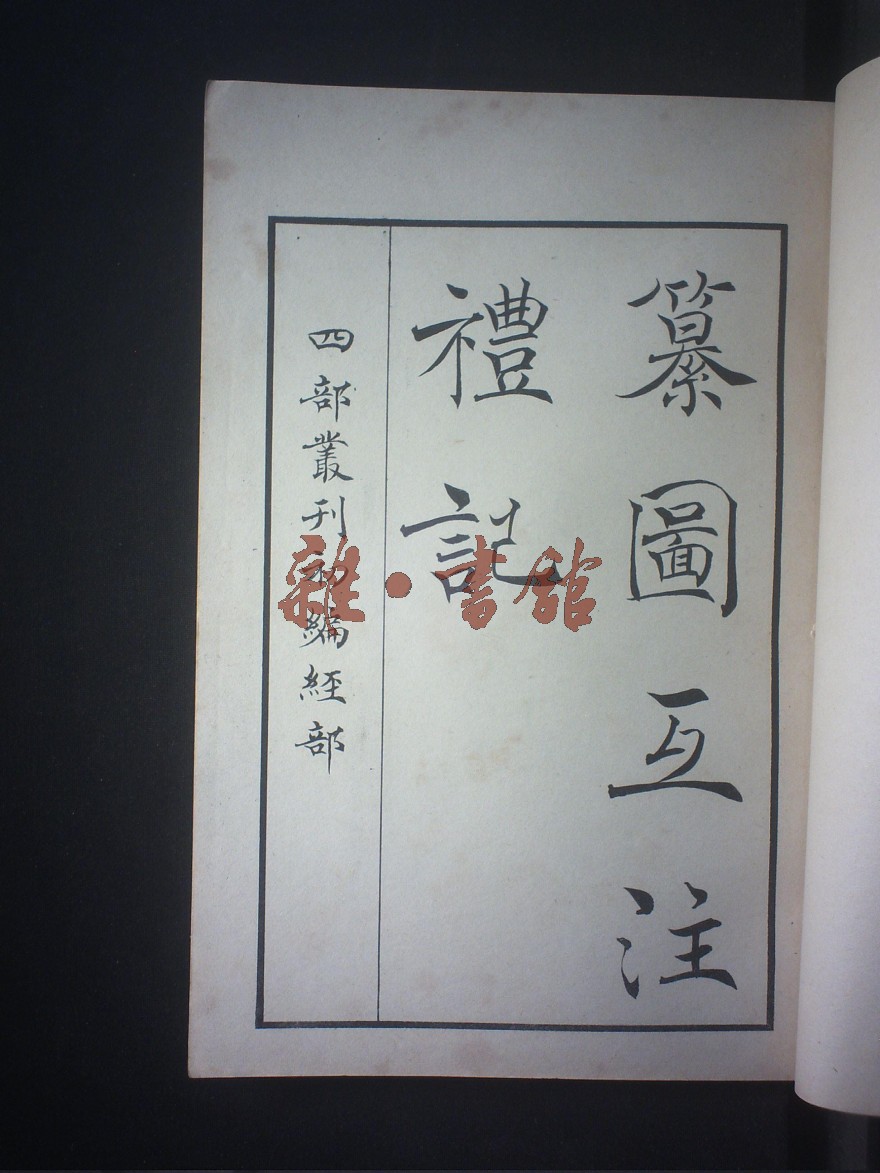 纂圖互注
禮記
四部叢刊初編經部
雜·書館